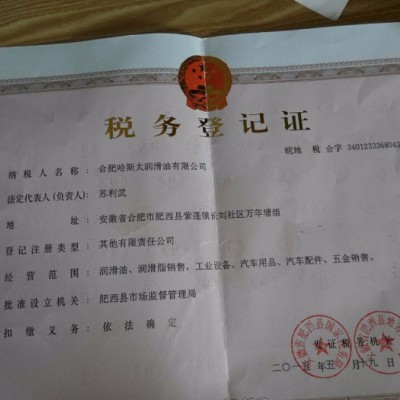 税务登记证
皖地 税 合字 3401233368043
纳税人名称： 合肥哈斯太润滑油有限公司
法定代表人(负责人)： 苏利武
地 址： 安徽省合肥市肥西县紫蓬镇长刘社区万年塘组
登记注册类型： 其他有限责任公司
经营范围： 润滑油、润滑脂销售，工业设备、汽车用品、汽车配件、五金销售。
批准设立机关： 肥西县市场监督管理局
扣缴义务： 依法确定
发证税务机关
二〇一五年五月十九日